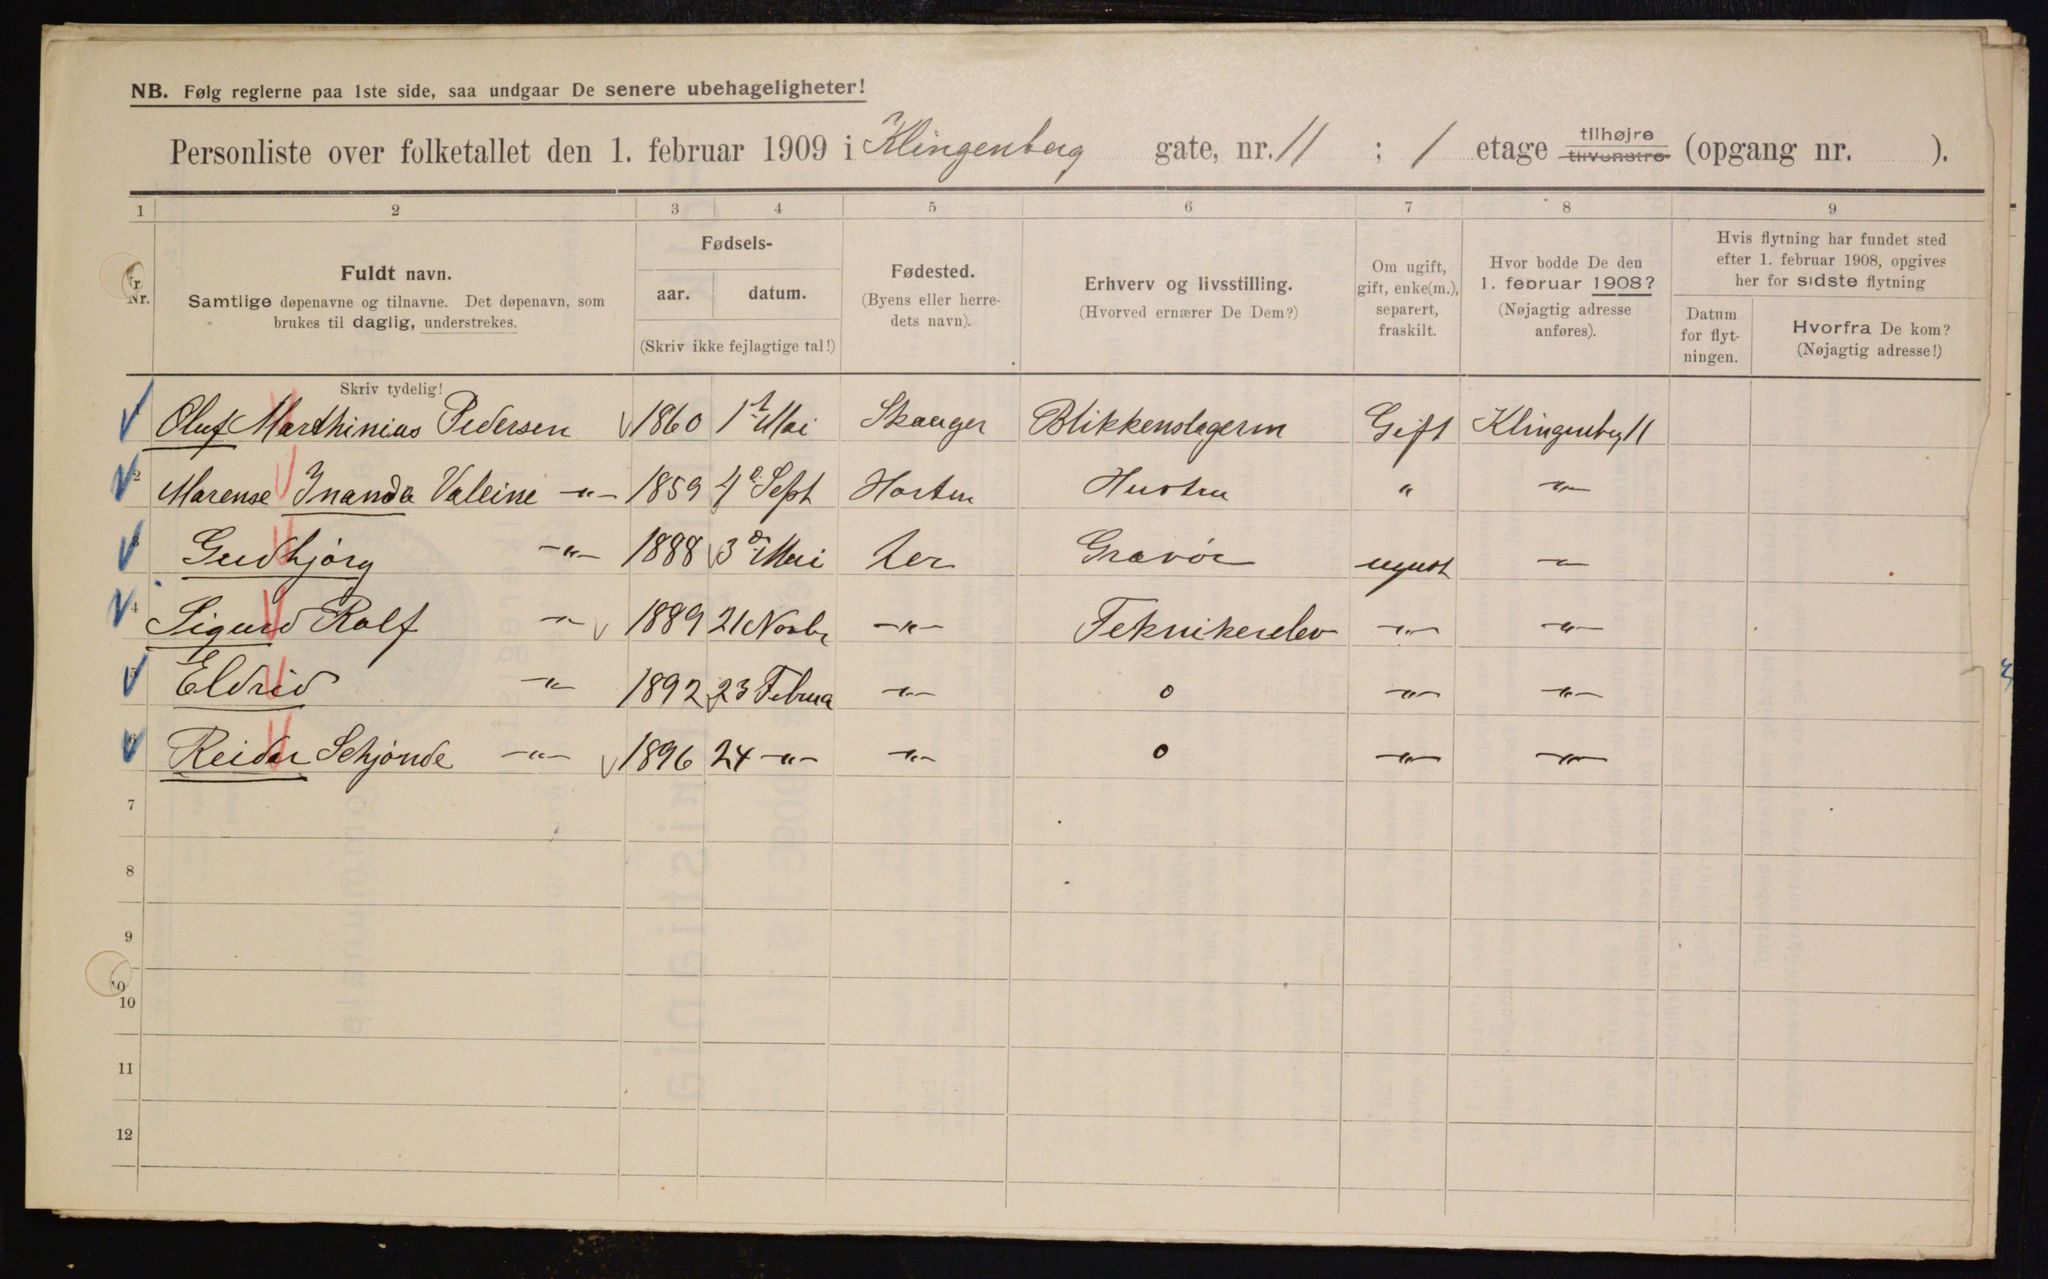 NB. Følg reglerne paa 1ste side, saa undgaar De senere ubehageligheter!
Personliste over folketallet den 1. februar 1909 i Klingenberg gate, nr. 11 ; 1 etage tilhøjre tilvenstre (opgang nr. ).
1 2 3 4 5 6 7 8 9
Nr.
Fuldt navn.
Samtlige døpenavne og tilnavne. Det døpenavn, som
brukes til daglig, understrekes.
Fødsels-
aar. datum.
(Skriv ikke fejlagtige tal!)
Fødested.
(Byens eller herre-
dets navn).
Erhverv og livsstilling.
(Hvorved ernærer De Dem?)
Om ugift,
gift, enke(m.),
separert,
fraskilt.
Hvor bodde De den
1. februar 1908?
(Nøjagtig adresse
anføres).
Hvis flytning har fundet sted
efter 1. februar 1908, opgives
her for sidste flytning
Datum
for flyt-
ningen.
Hvorfra De kom?
(Nøjagtig adresse!)
Skriv tydelig!
1 Oluf Marthinius Pedersen 1860 1 Mai Skauger Blikkenslagerm Gift Klingenbg 11
2 Marense Inanda Valeine -"- 1859 4 Sept Horten Hustru " -"-
3 Gudbjørg -"- 1888 3 Mai her Gravør ugift -"-
4 Sigurd Rolf -"- 1889 21 Novbr -"- Teknikerelev -"- -"-
5 Eldrid -"- 1892 23 Februa -"- o -"- -"-
6 Reidar Schjønde -"- 1896 24 -"- -"- o -"- -"-
7
8
9
10
10
11
12